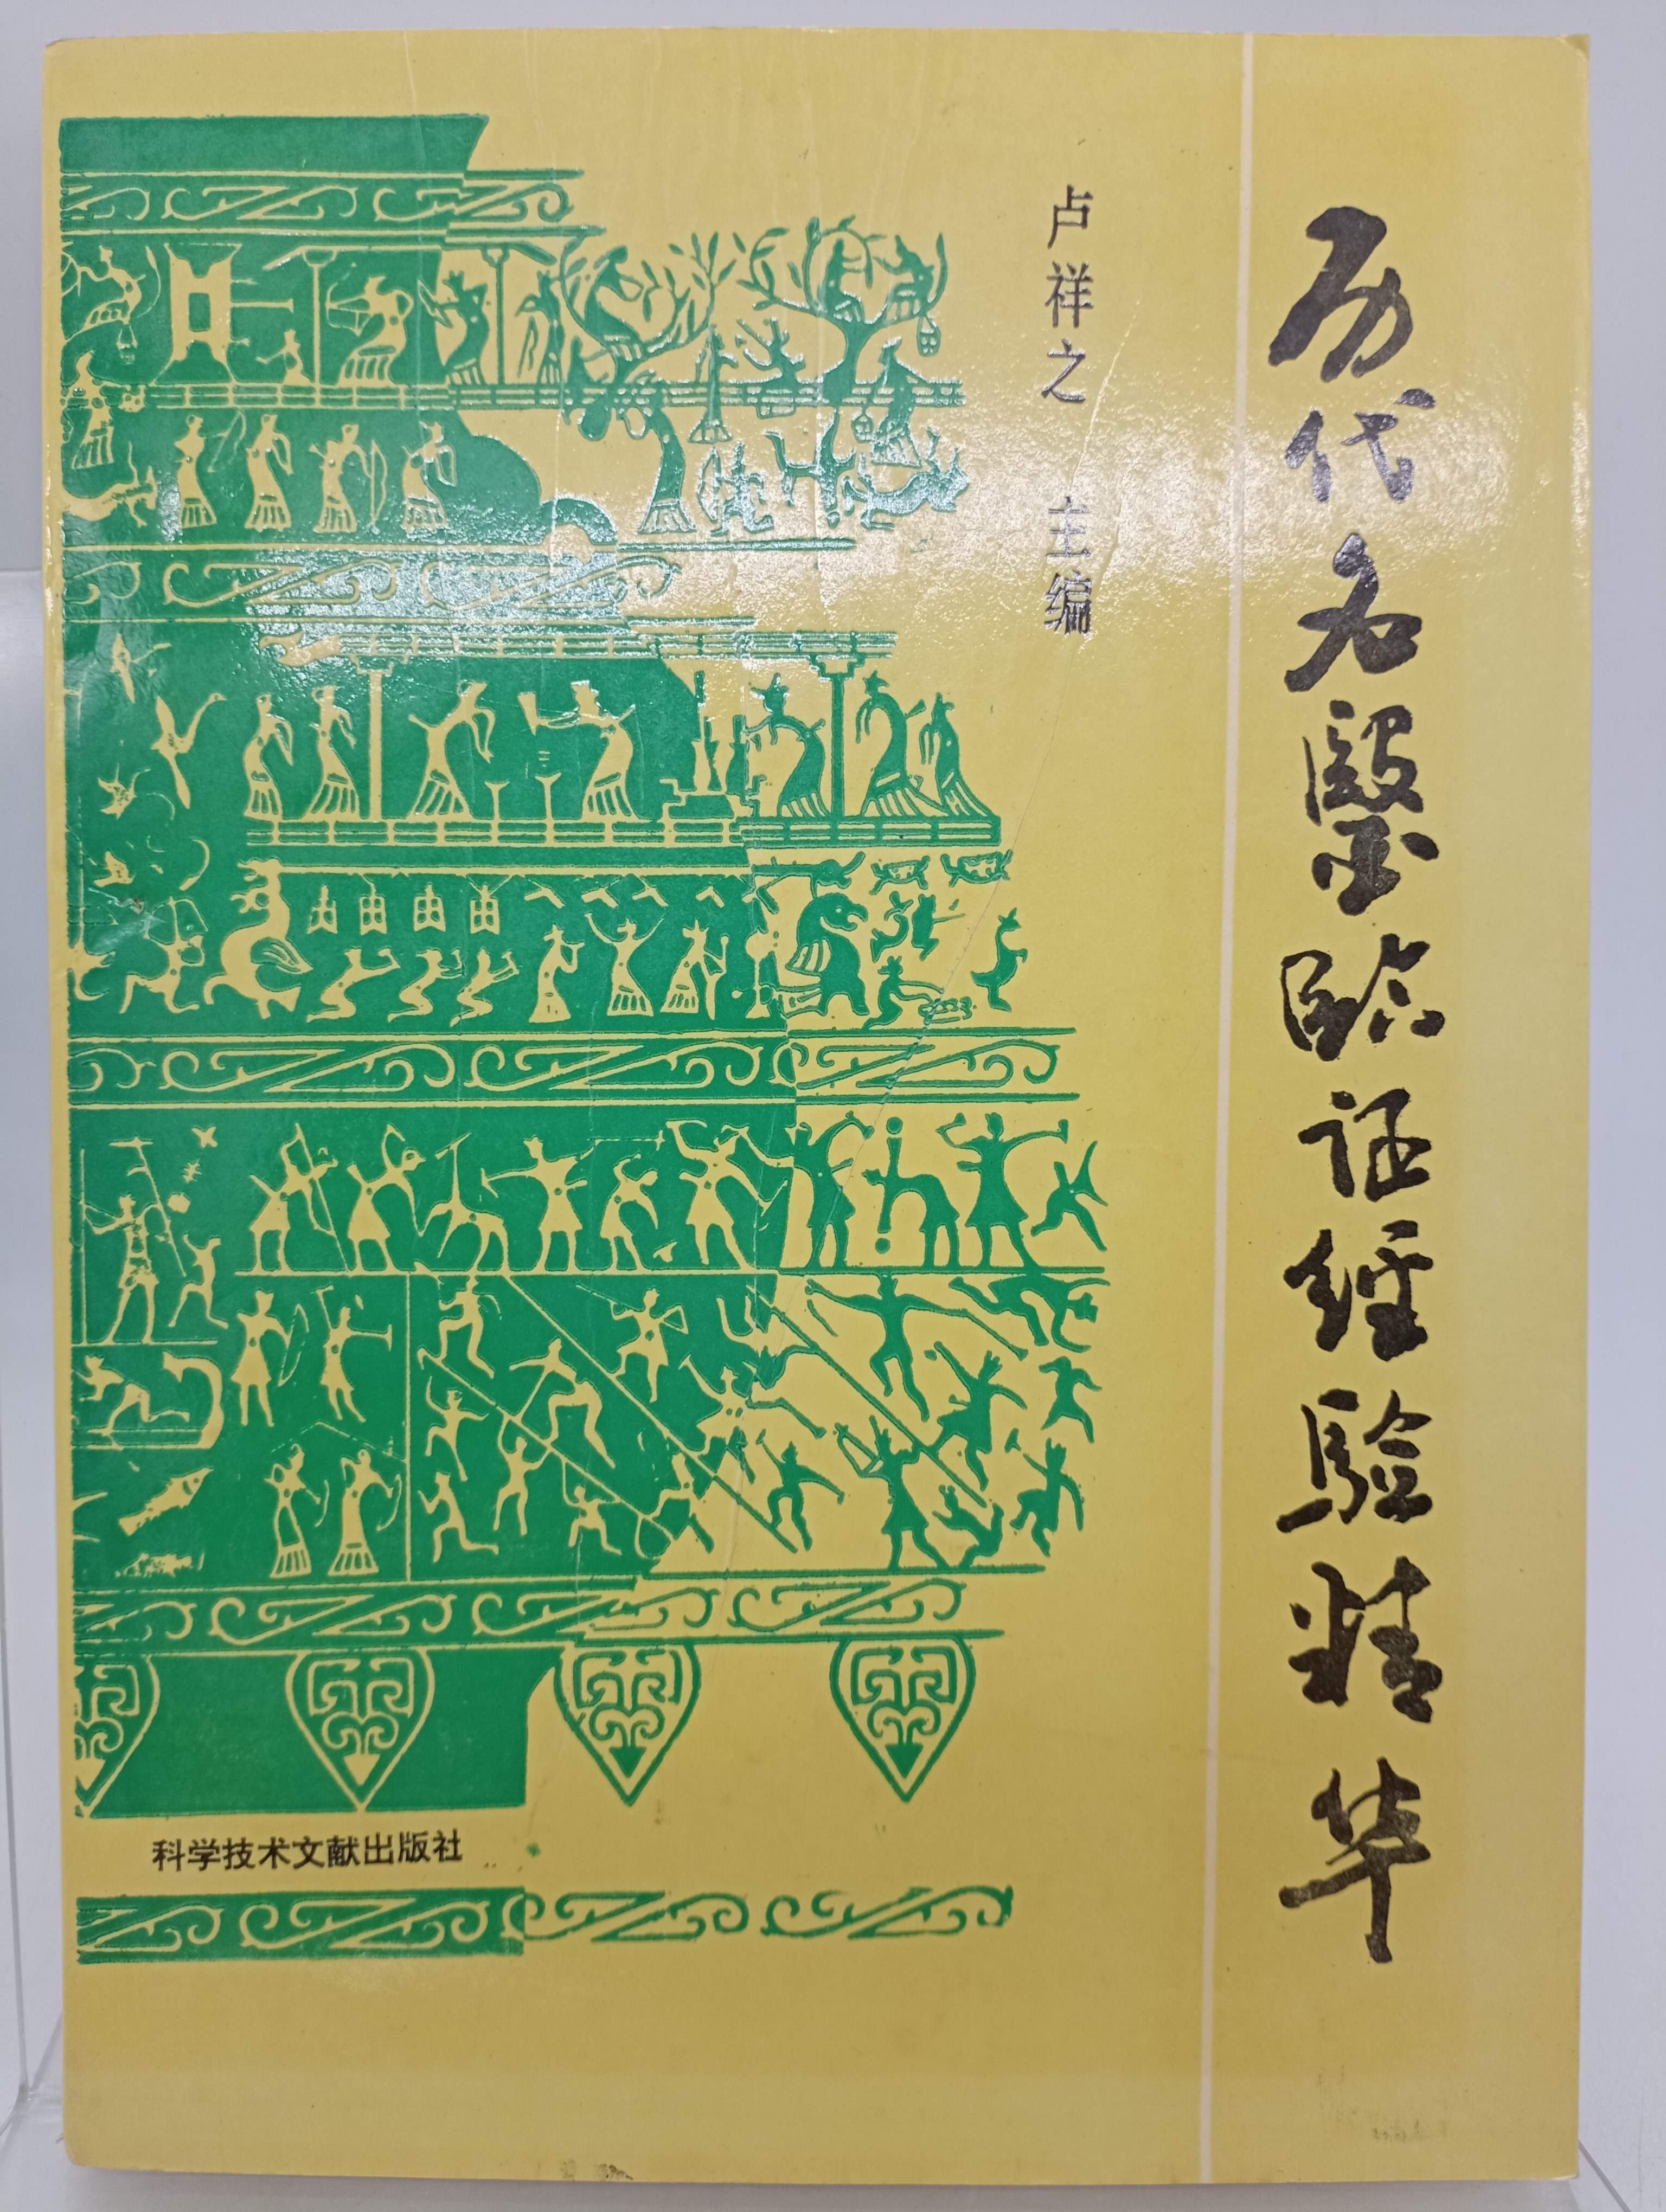 历代名醫臨证经驗精华
卢祥之 主编
科学技术文献出版社